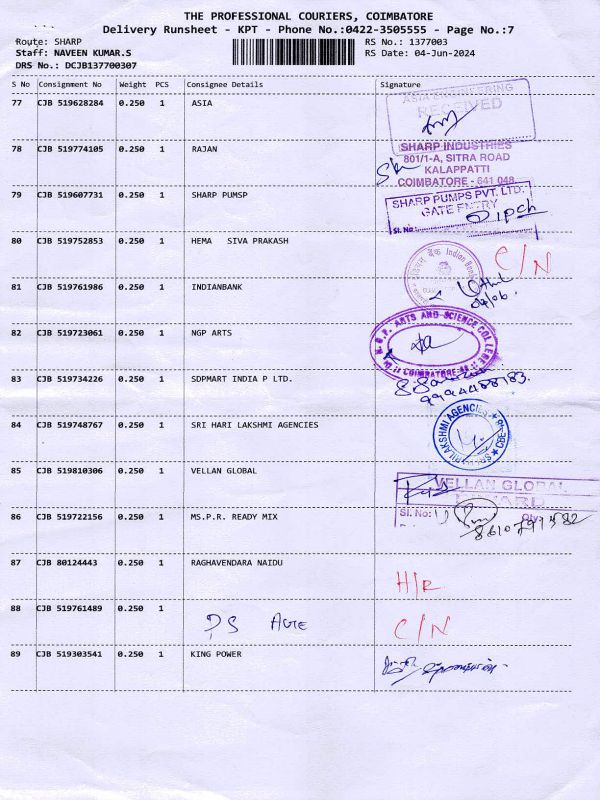 THE PROFESSIONAL COURIERS, COIMBATORE
Delivery Runsheet - KPT - Phone No.:0422-3505555 - Page No.:7
Route: SHARP RS No.: 1377003
Staff: NAVEEN KUMAR.S RS Date: 04-Jun-2024
DRS No.: DCJB137700307
S No Consignment No Weight PCS Consignee Details Signature
77 CJB 519628284 0.250 1 ASIA
ASIA ENGINEERING
RECEIVED
78 CJB 519774105 0.250 1 RAJAN
SHARP INDUSTRIES
801/1-A, SITRA ROAD
KALAPPATTI
COIMBATORE - 641 048
79 CJB 519607731 0.250 1 SHARP PUMSP
SHARP PUMPS PVT. LTD.
GATE ENTRY
Sl. No:
80 CJB 519752853 0.250 1 HEMA SIVA PRAKASH C/N
81 CJB 519761986 0.250 1 INDIANBANK
Indian Bank
04/06.
82 CJB 519723061 0.250 1 NGP ARTS
N.G.P. ARTS AND SCIENCE COLLEGE
COIMBATORE-48
83 CJB 519734226 0.250 1 SDPMART INDIA P LTD.
9994488183.
84 CJB 519748767 0.250 1 SRI HARI LAKSHMI AGENCIES
85 CJB 519810306 0.250 1 VELLAN GLOBAL
VELLAN GLOBAL
INWARD
Sl. No:
86 CJB 519722156 0.250 1 MS.P.R. READY MIX
87 CJB 80124443 0.250 1 RAGHAVENDARA NAIDU H/R
88 CJB 519761489 0.250 1 PS C/N
89 CJB 519303541 0.250 1 KING POWER